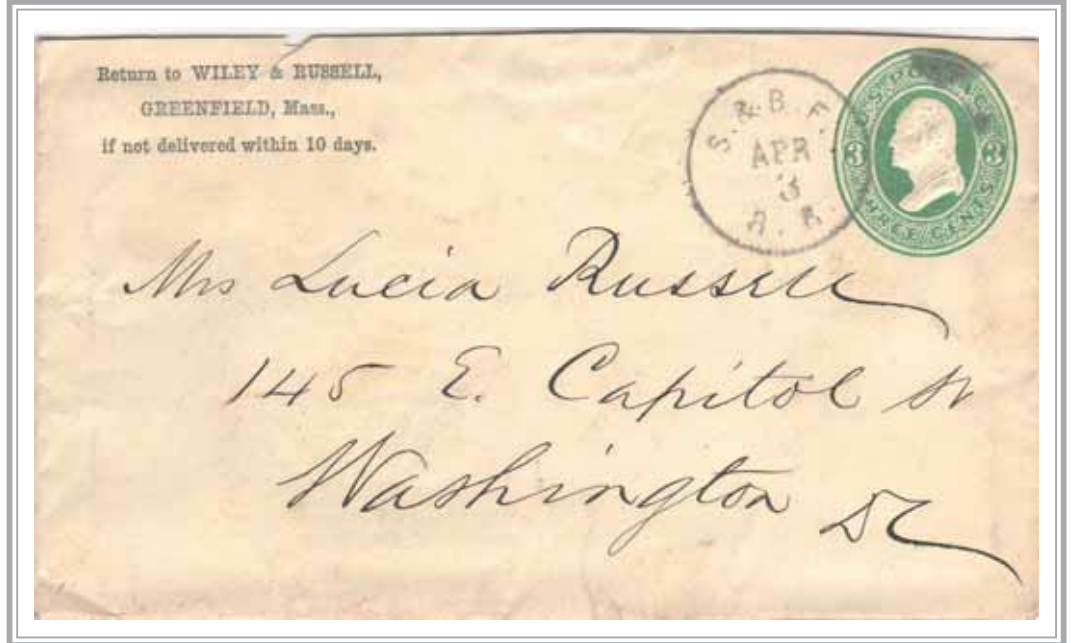 Return to WILEY & RUSSELL,
GREENFIELD, Mass.,
if not delivered within 10 days.
S. & B. F.
APR
R. R.
U.S. POSTAGE
3 3
THREE CENTS
Mrs Lucia Russell
145 E. Capitol St
Washington DC